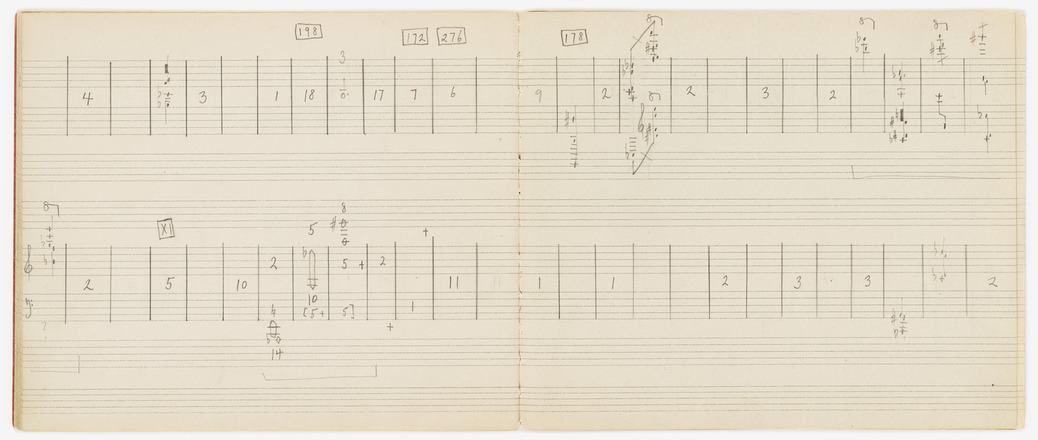 198 172 276 178
3
4 3 1 18 17 7 6 9 2 2 3 2
XI 5 8
2 5 2
2 5 10 5 + 2 11 1 1 2 3 3 2
10
[5+ 5] 1
14